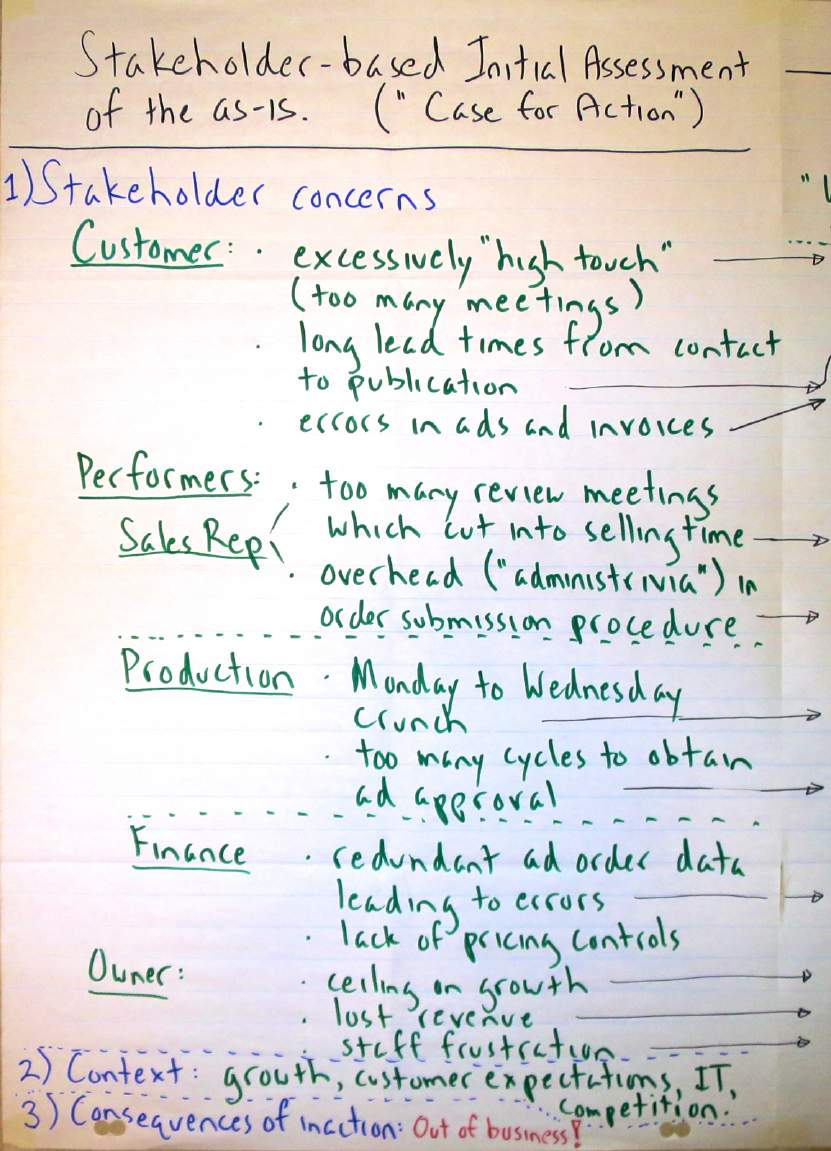 Stakeholder-based Initial Assessment
of the as-is. ("Case for Action")
1) Stakeholder concerns
Customer: · excessively "high touch"
(too many meetings)
· long lead times from contact
to publication
· errors in ads and invoices
Performers: · too many review meetings
Sales Rep which cut into selling time
· overhead ("administrivia") in
order submission procedure
Production · Monday to Wednesday
crunch
· too many cycles to obtain
ad approval
Finance · redundant ad order data
leading to errors
· lack of pricing controls
Owner: · ceiling on growth
· lost revenue
· staff frustration
2) Context: growth, customer expectations, IT,
competition.
3) Consequences of inaction: Out of business!